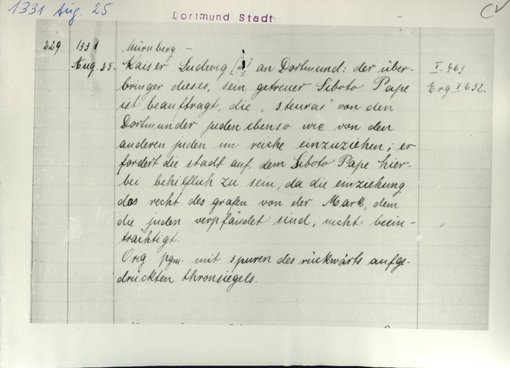 1331 Aug. 25
Dortmund Stadt
229 1331 Nürnberg –
Aug 25. Kaiser Ludwig an Dortmund: der über- I. 463
bringer dieses, sein getreuer Siboto Pape Erg I 632.
ist beauftragt, die „steuras" von den
Dortmunder juden ebenso wie von den
anderen juden im reiche einzuziehen; er
fordert die stadt auf, dem Siboto Pape hier-
bei behilflich zu sein, da die einziehung
das recht des grafen von der Mark, dem
die juden verpfändet sind, nicht beein-
trächtigt.
Org. pgm. mit spuren des rückwärts aufge-
drückten thronsiegels.